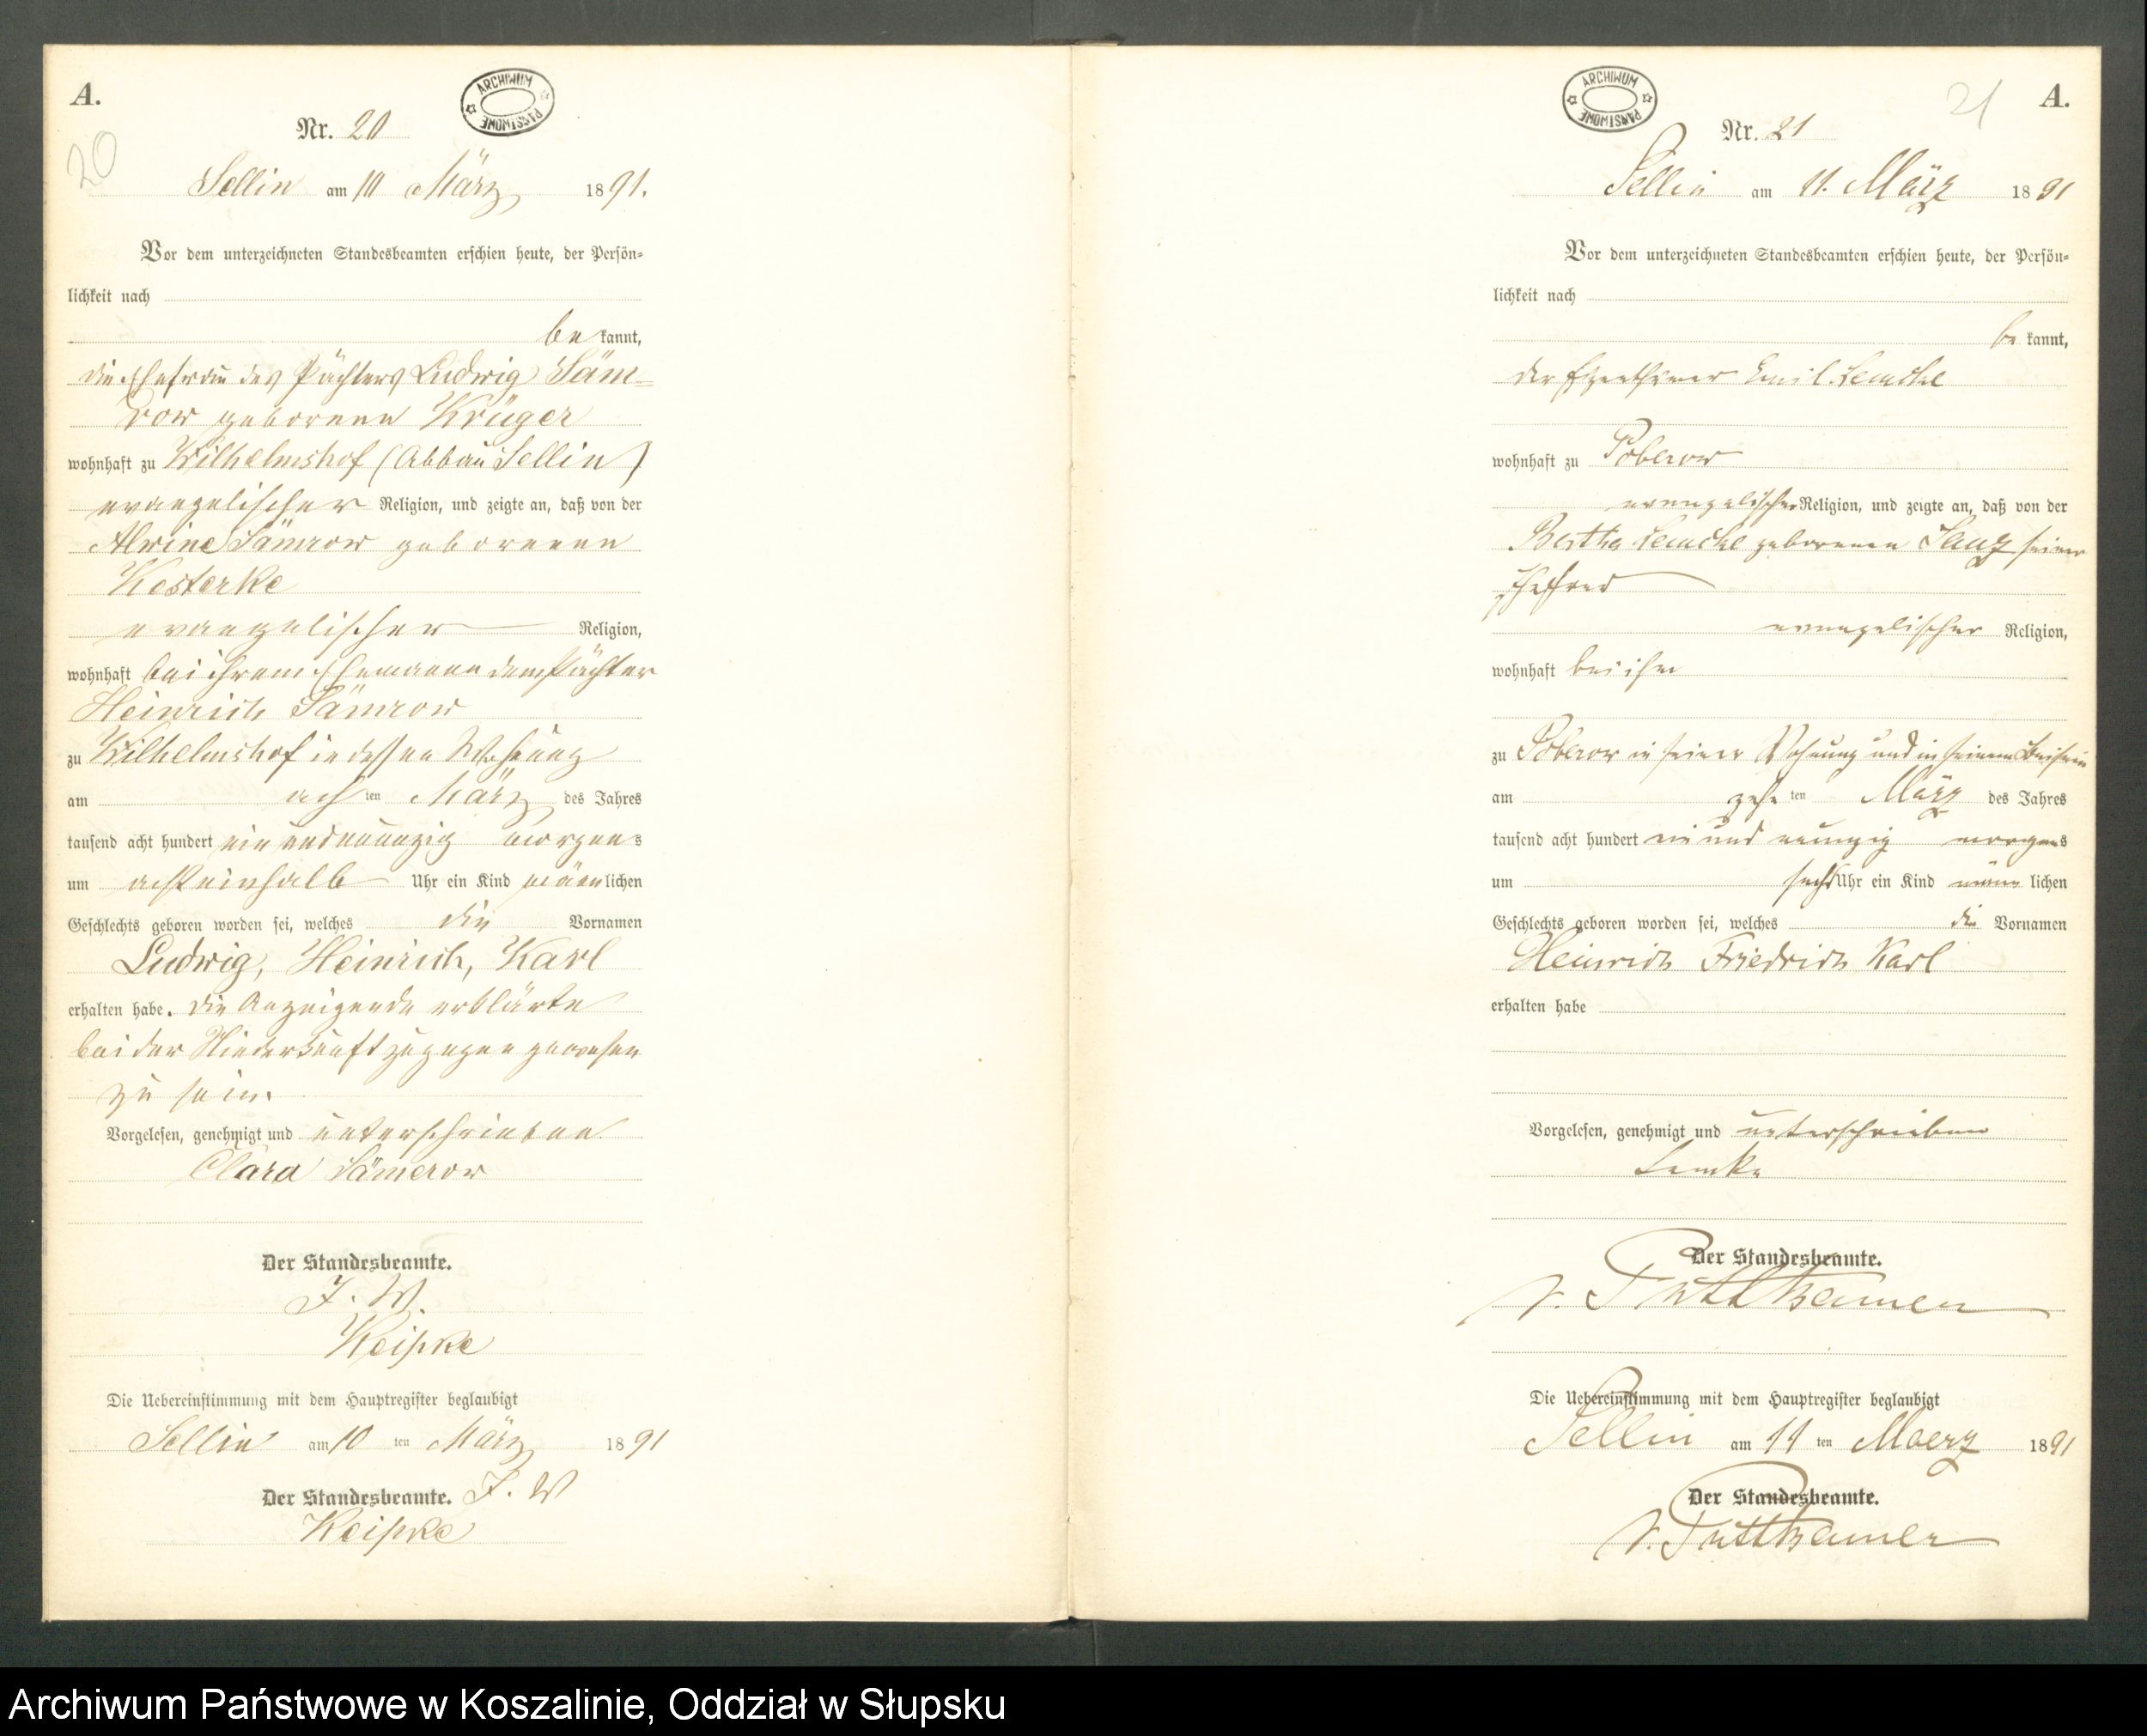 A.
20
Nr. 20
ARCHIWUM PAŃSTWOWE
Sellin am 10 März 1891.
Vor dem unterzeichneten Standesbeamten erschien heute, der Persön=
lichkeit nach
be kannt,
die Ehefrau des Pächters Ludwig Säm=
row geborene Krüger
wohnhaft zu Wilhelmshof (Abbau Sellin)
evangelischer Religion, und zeigte an, daß von der
Alwine Sämrow geborenen
Kesterke
evangelischer Religion,
wohnhaft bei ihrem Ehemanne dem Pächter
Heinrich Sämrow
zu Wilhelmshof in dessen Wohnung
am ach ten März des Jahres
tausend acht hundert ein und neunzig morgens
um achteinhalb Uhr ein Kind männlichen
Geschlechts geboren worden sei, welches die Vornamen
Ludwig, Heinrich, Karl
erhalten habe. Die Anzeigende erklärte
bei der Niederkunft zugegen gewesen
zu sein.
Vorgelesen, genehmigt und unterschrieben
Clara Sämerow
Der Standesbeamte.
J. V.
Keipke
Die Uebereinstimmung mit dem Hauptregister beglaubigt
Sellin am 10 ten März 1891
Der Standesbeamte. J. V
Keipke
21
A.
ARCHIWUM PAŃSTWOWE
Nr. 21
Sellin am 11. März 1891
Vor dem unterzeichneten Standesbeamten erschien heute, der Persön=
lichkeit nach
be kannt,
der Eigenthümer Emil Lemcke
wohnhaft zu Poberow
evangelischer Religion, und zeigte an, daß von der
Bertha Lemcke geborenen seiner
Ehefrau
evangelischer Religion,
wohnhaft bei ihm
zu Poberow in seiner Wohnung und in seinem Beisein
am zehn ten März des Jahres
tausend acht hundert ein und neunzig morgens
um sechs Uhr ein Kind männ lichen
Geschlechts geboren worden sei, welches die Vornamen
Heinrich Friedrich Karl
erhalten habe
Vorgelesen, genehmigt und unterschrieben
Lemke
Der Standesbeamte.
v. Puttkamer
Die Uebereinstimmung mit dem Hauptregister beglaubigt
Sellin am 11 ten Maerz 1891
Der Standesbeamte.
v. Puttkamer
Archiwum Państwowe w Koszalinie, Oddział w Słupsku